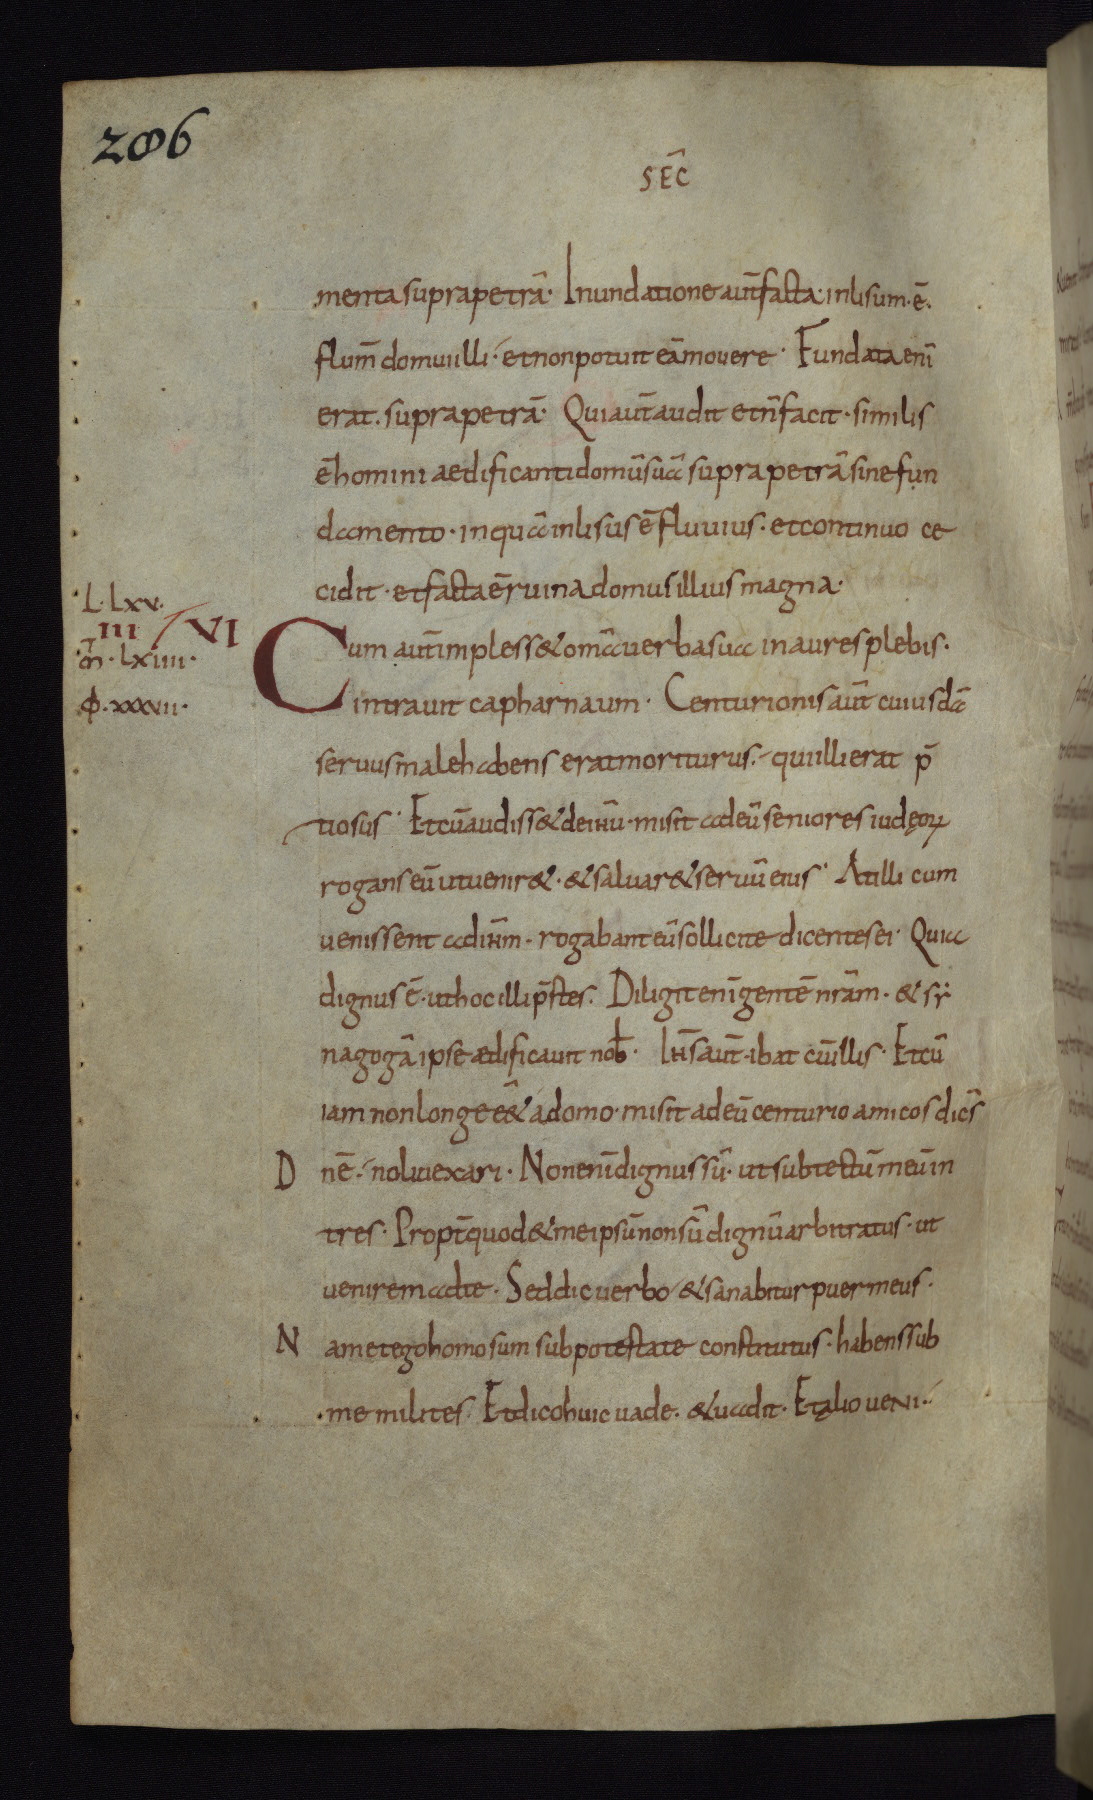 206
SEC̄
menta supra petrā· Inundatione aut̄ facta· inlisum· ē·
flum̄ domui illi· et non potuit eā movere· Fundata enī
erat· supra petrā· Qui aut̄ audit et n̄ facit· similis
ē homini aedificanti domū suā supra petrā sine fun
damento· in quā inlisus ē fluvius· et continuo ce
cidit· et facta ē ruina domus illius magna·
L·Lxv·
III VI
m̄·Lxiiii·
Φ·xxxvii·
Cum aut̄ impless& om̄a verba sua in aures plebis·
intravit capharnaum· Centurionis aut̄ cuiusdā
servus male habens erat moriturus· qui illi erat p̄
tiosus· Et cū audiss& de ih̄u· misit ad eū seniores iudęorꝝ
rogans eū ut venir& · & salvar& servū eius· At illi cum
venissent ad ih̄m· rogabant eū sollicite dicentes ei· Quia
dignus ē· ut hoc illi p̄stes· Diligit enī gentē nr̄am· & sy
nagogā ipse aedificavit nob̄· Ih̄s aut̄· ibat cū illis· Et cū
iam non longe eē& a domo· misit ad eū centurio amicos dicēs
Dnē· noli vexari· Non enī dignus sū· ut sub tectū meū in
tres· Propt̄ quod & me ipsū non sū dignū arbitratus· ut
venirem ad te· Sed dic verbo & sanabitur puer meus·
Nam et ego homo sum sub potestate constitutus· habens sub
me milites· Et dico huic vade· & vadit· Et alio veni·